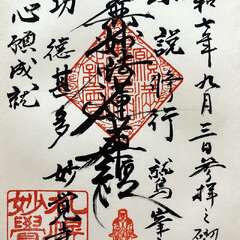 和七年九月三日参拝之砌
説修行 鷲峯
無妙法蓮華経
功徳甚多 妙覚寺
心願成就